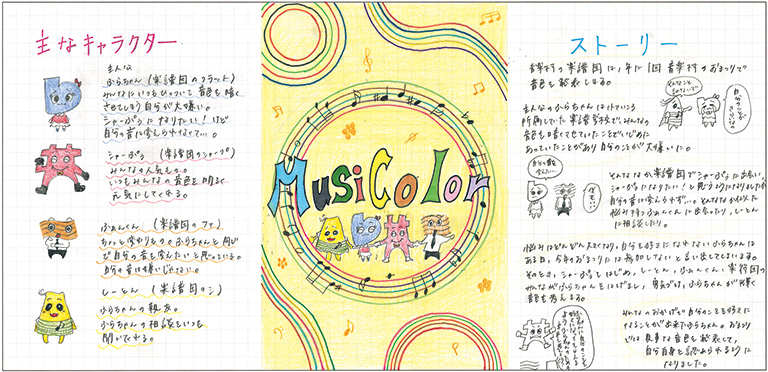 主なキャラクター
主人公
ふらちゃん(楽譜国のフラット)
みんなにいつもひっついて音色を暗く
させてしまう自分が大嫌い。
シャープになりたい!けど
自分の音は
しゃーぷう(楽譜国のシャープ)
みんなの人気もの。
いつもみんなの音色を明るく
元気にしてくれる。
ふぁんくん(楽譜国のファ)
ちょっと変わりもの。ふらちゃんと同じ
で自分の音を変えたいと思っている。
自分の音は嫌いじゃない。
しーとん(楽譜国のシ)
ふらちゃんの親友。
ふらちゃんの相談をいつも
聞いてくれる。
MusiColor
ストーリー
音楽村の楽譜国は1年に1回音楽村のおまつりで
音色を披露しまる。
主人公のふらちゃんは
所属していた楽譜学校でみんなの
音色を暗くさせていたことでいじめに
あっていたことがあり自分のことが大嫌いだ。
そんななか楽譜国でしゃーぷうに出会い、
シャープになりたい!と思うようになりましたが
自分の音は変えられず…。そんななか
悩み すふぁんくんに出会ったり、しーとん
に相談したり。
悩みはどんどん大きくなり、自分を好きになれないふらちゃんは
ある日、今年のおまつりには参加しないと言い出してしまいまる。
そのとき、しゃーぷうをはじめ、しーとん、ふぁんくん、楽符国の
みんながふらちゃんをはげまし、勇気づけ、ふらちゃんが輝く
音色を考えまる。
みんなのおかげで自分のことを好きに
なることが出来たふらちゃん。おまつり
では見事な音色を披露して、
自分自身を認められるように
なりました。